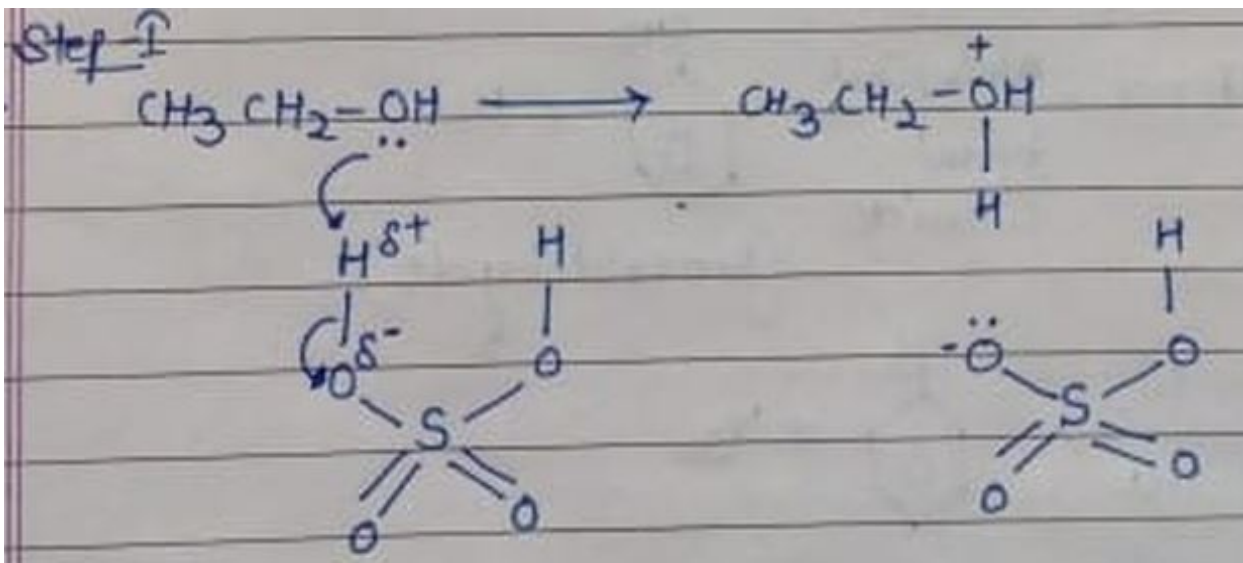 Step-I
CH3 CH2-OH ⟶ CH3 CH2-OH
+
H
H δ+ H
H
O δ- O
-O O
S
S
O O
O O